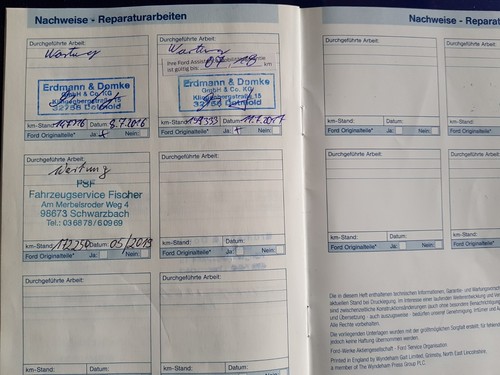 Nachweise - Reparaturarbeiten
Durchgeführte Arbeit:
Wartung
Erdmann & Domke
GmbH & Co. KG
Klingenbergstraße 15
32758 Detmold
km-Stand: Datum: 8.7.2016
Ford Originalteile* Ja: x Nein:
Durchgeführte Arbeit:
Wartung
Ihre Ford
ist gültig bis: 07, 18 km
Erdmann & Domke
GmbH & Co. KG
Klingenbergstraße 15
32758 Detmold
km-Stand: Datum: 11.7.2017
Ford Originalteile* Ja: x Nein:
Durchgeführte Arbeit:
Wartung
Fahrzeugservice Fischer
Am Merbelsroder Weg 4
98673 Schwarzbach
Tel.: 03 68 78 / 6 09 69
km-Stand: 172250 Datum: 05/2019
Ford Originalteile* Ja: Nein:
Durchgeführte Arbeit:
km-Stand: Datum:
Ford Originalteile* Ja: Nein:
Durchgeführte Arbeit:
Durchgeführte Arbeit:
Nachweise - Repara
Durchgeführte Arbeit:
Durchgefü
km-Stand: Datum:
km-Stand:
Ford Originalteile* Ja: Nein:
Ford Origina
Durchgeführte Arbeit:
Durchgefü
km-Stand: Datum:
km-Stand:
Ford Originalteile* Ja: Nein:
Ford Origin
Die in diesem Heft enthaltenen technischen Informationen, Garantie- und Wartungsvorsch
aktuellen Stand bei Drucklegung. Im Interesse einer laufenden Weiterentwicklung und
sind zwischenzeitliche Konstruktionsänderungen auch ohne besondere Benachrichtigung
und Übersetzung - auch auszugsweise - bedürfen unserer Genehmigung. Irrtümer und
Alle Rechte vorbehalten.
Die vorliegenden Unterlagen wurden mit der größtmöglichen Sorgfalt erstellt, für
jedoch keine Haftung übernommen werden.
Ford-Werke Aktiengesellschaft - Ford Service Organisation
Printed in England by Wyndeham Gait Limited, Grimsby, North East Lincolnshire.
a member of The Wyndeham Press Group PLC.